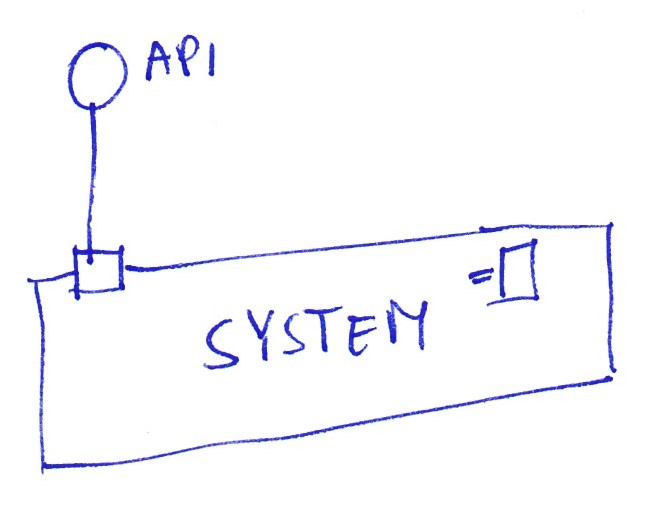 API
SYSTEM